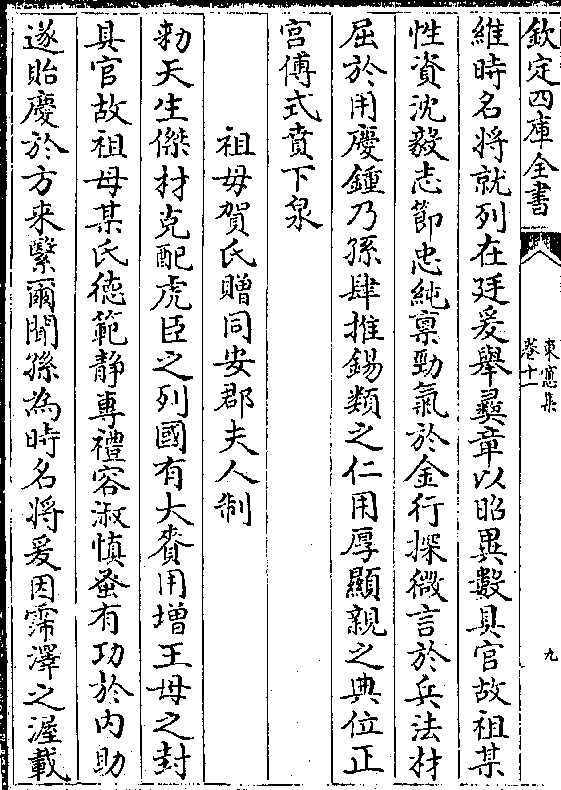 欽定四庫全書
東窻集
卷十一
九
維時名將就列在廷爰舉彛章以昭異數具官故祖某
性資沈毅志節忠純禀勁氣於金行探微言於兵法材
屈於用慶鍾乃孫肆推錫類之仁用厚顯親之典位正
宫傅式賁下泉
祖母賀氏贈同安郡夫人制
勑天生傑材克配虎臣之列國有大賚用増王母之封
具官故祖母某氏徳範靜專禮容淑慎蚤有功於内助
遂貽慶於方來繄爾聞孫為時名将爰因霈澤之渥載